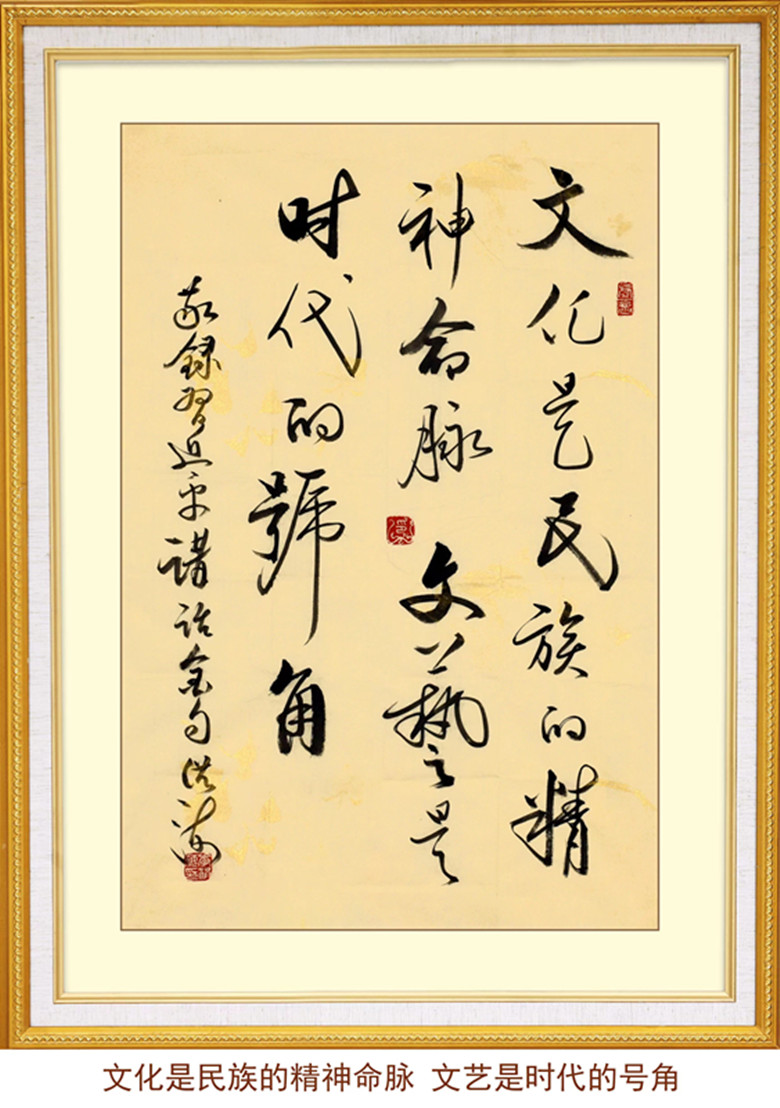 文化是民族的精
神命脉 文藝是
时代的號角
敬録習近平講話金句 洪
文化是民族的精神命脉 文艺是时代的号角